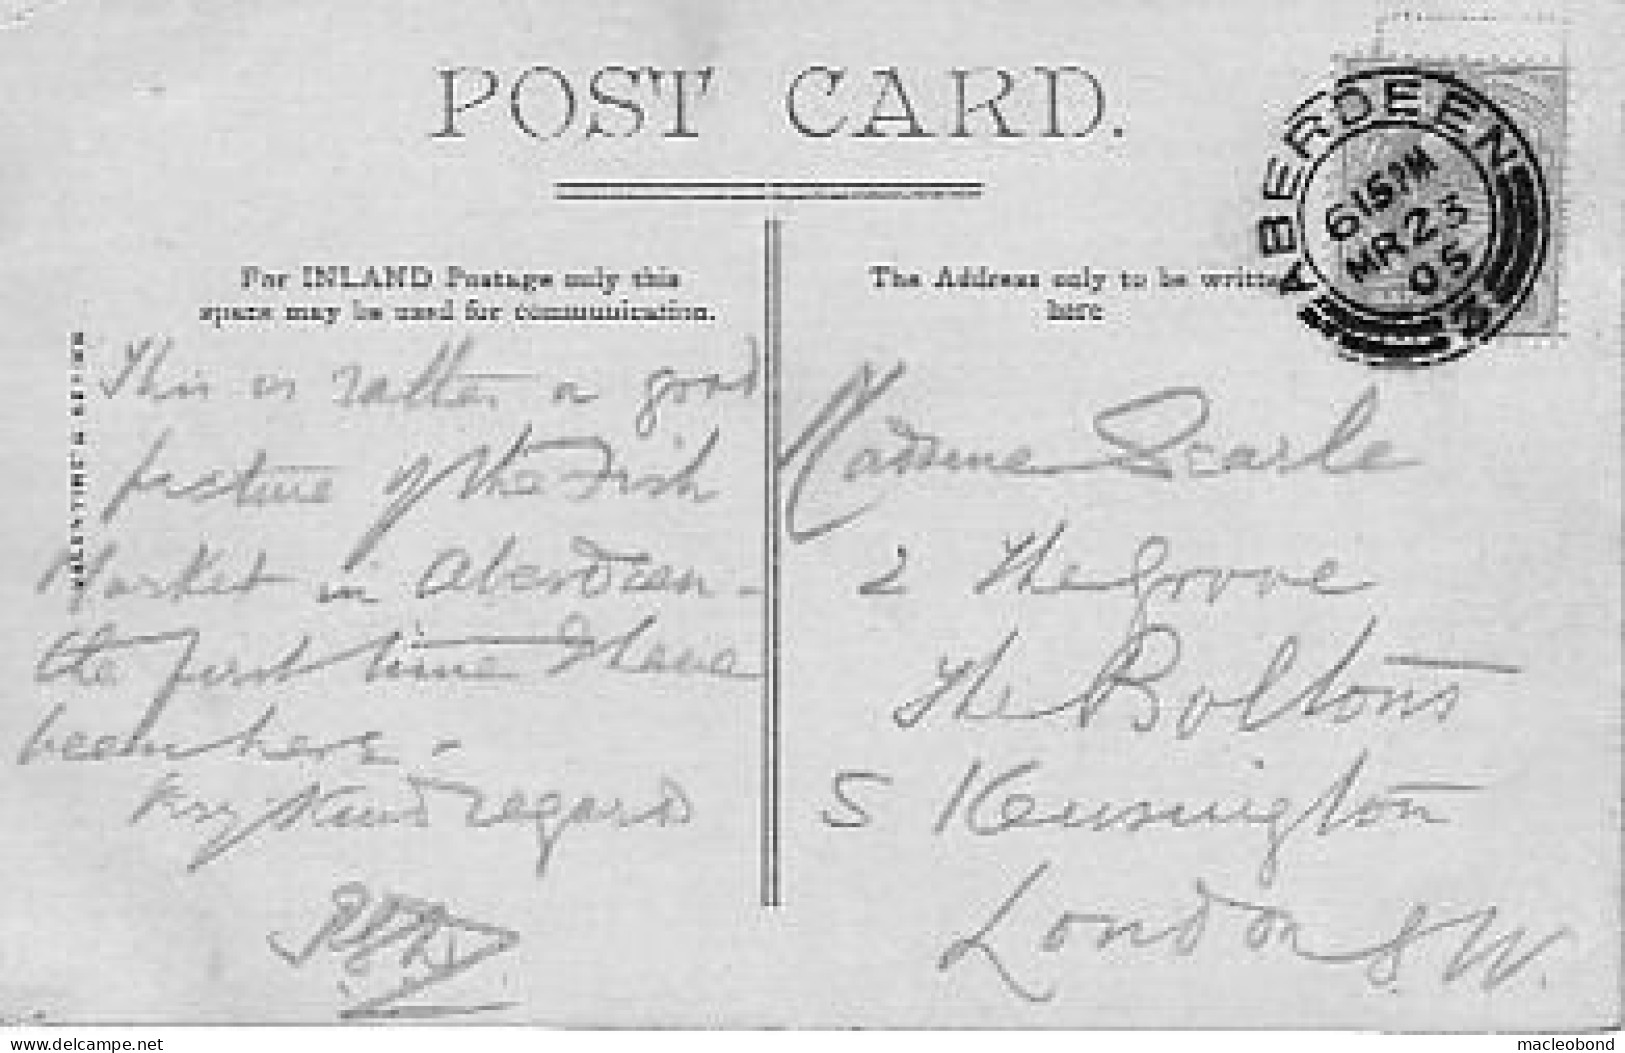 POST CARD.
For INLAND Postage only this
space may be used for communication.
The Address only to be written
here
ABERDEEN
6 15 PM
MR 23
05
3
VALENTINE'S SERIES
This is rather a good
picture of the Fish
Market in Aberdeen -
the first time I have
been here -
kind regards
Madame Searle
2 The Grove
The Boltons
S Kensington
London S.W.
www.delcampe.net
macleobond